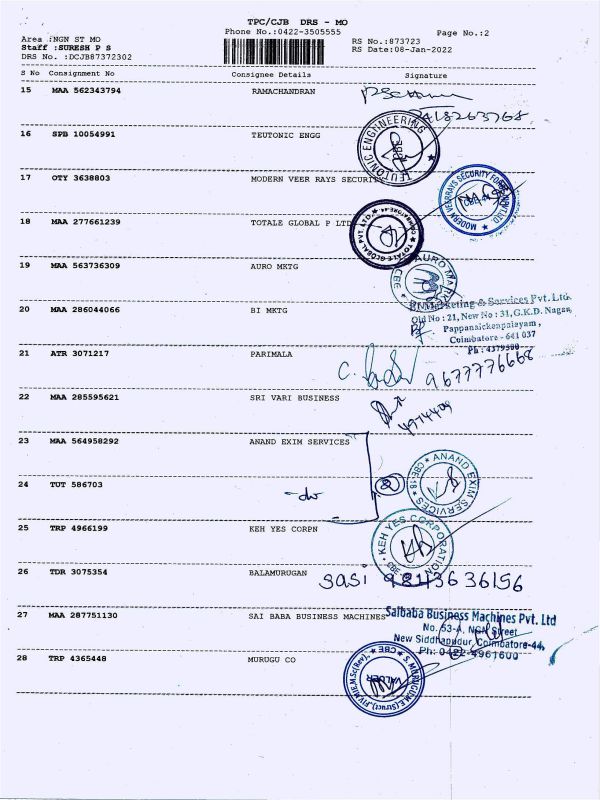 TPC/CJB DRS - MO
Phone No.:0422-3505555
Page No.:2
Area :NGN ST MO
RS No.:873723
Staff :SURESH P S
RS Date:08-Jan-2022
DRS No. :DCJB87372302
S No Consignment No Consignee Details Signature
15 MAA 562343794 RAMACHANDRAN
16 SPB 10054991 TEUTONIC ENGG
TEUTONIC ENGINEERING
17 OTY 3638803 MODERN VEER RAYS SECURIT
18 MAA 277661239 TOTALE GLOBAL P LTD
TOTALE GLOBAL PVT. LTD. COIMBATORE-44
19 MAA 563736309 AURO MKTG
CBE
20 MAA 286044066 BI MKTG
Marketing & Services Pvt. Ltd.
Old No : 21, New No : 31, G.K.D. Nagar,
Pappanaickenpalayam,
Coimbatore - 641 037
Ph : 4379500
21 ATR 3071217 PARIMALA
9677776668
22 MAA 285595621 SRI VARI BUSINESS
23 MAA 564958292 ANAND EXIM SERVICES
ANAND EXIM SERVICES CBE-18
24 TUT 586703
2
25 TRP 4966199 KEH YES CORPN
KEH YES CORPORATION
26 TDR 3075354 BALAMURUGAN
sasi 9843636156
27 MAA 287751130 SAI BABA BUSINESS MACHINES
Saibaba Business Machines Pvt. Ltd
No. 53-A, NGN Street
New Siddhapudur, Coimbatore-44,
Ph: 0422-4961600
28 TRP 4365448 MURUGU CO
VALUER
CBE